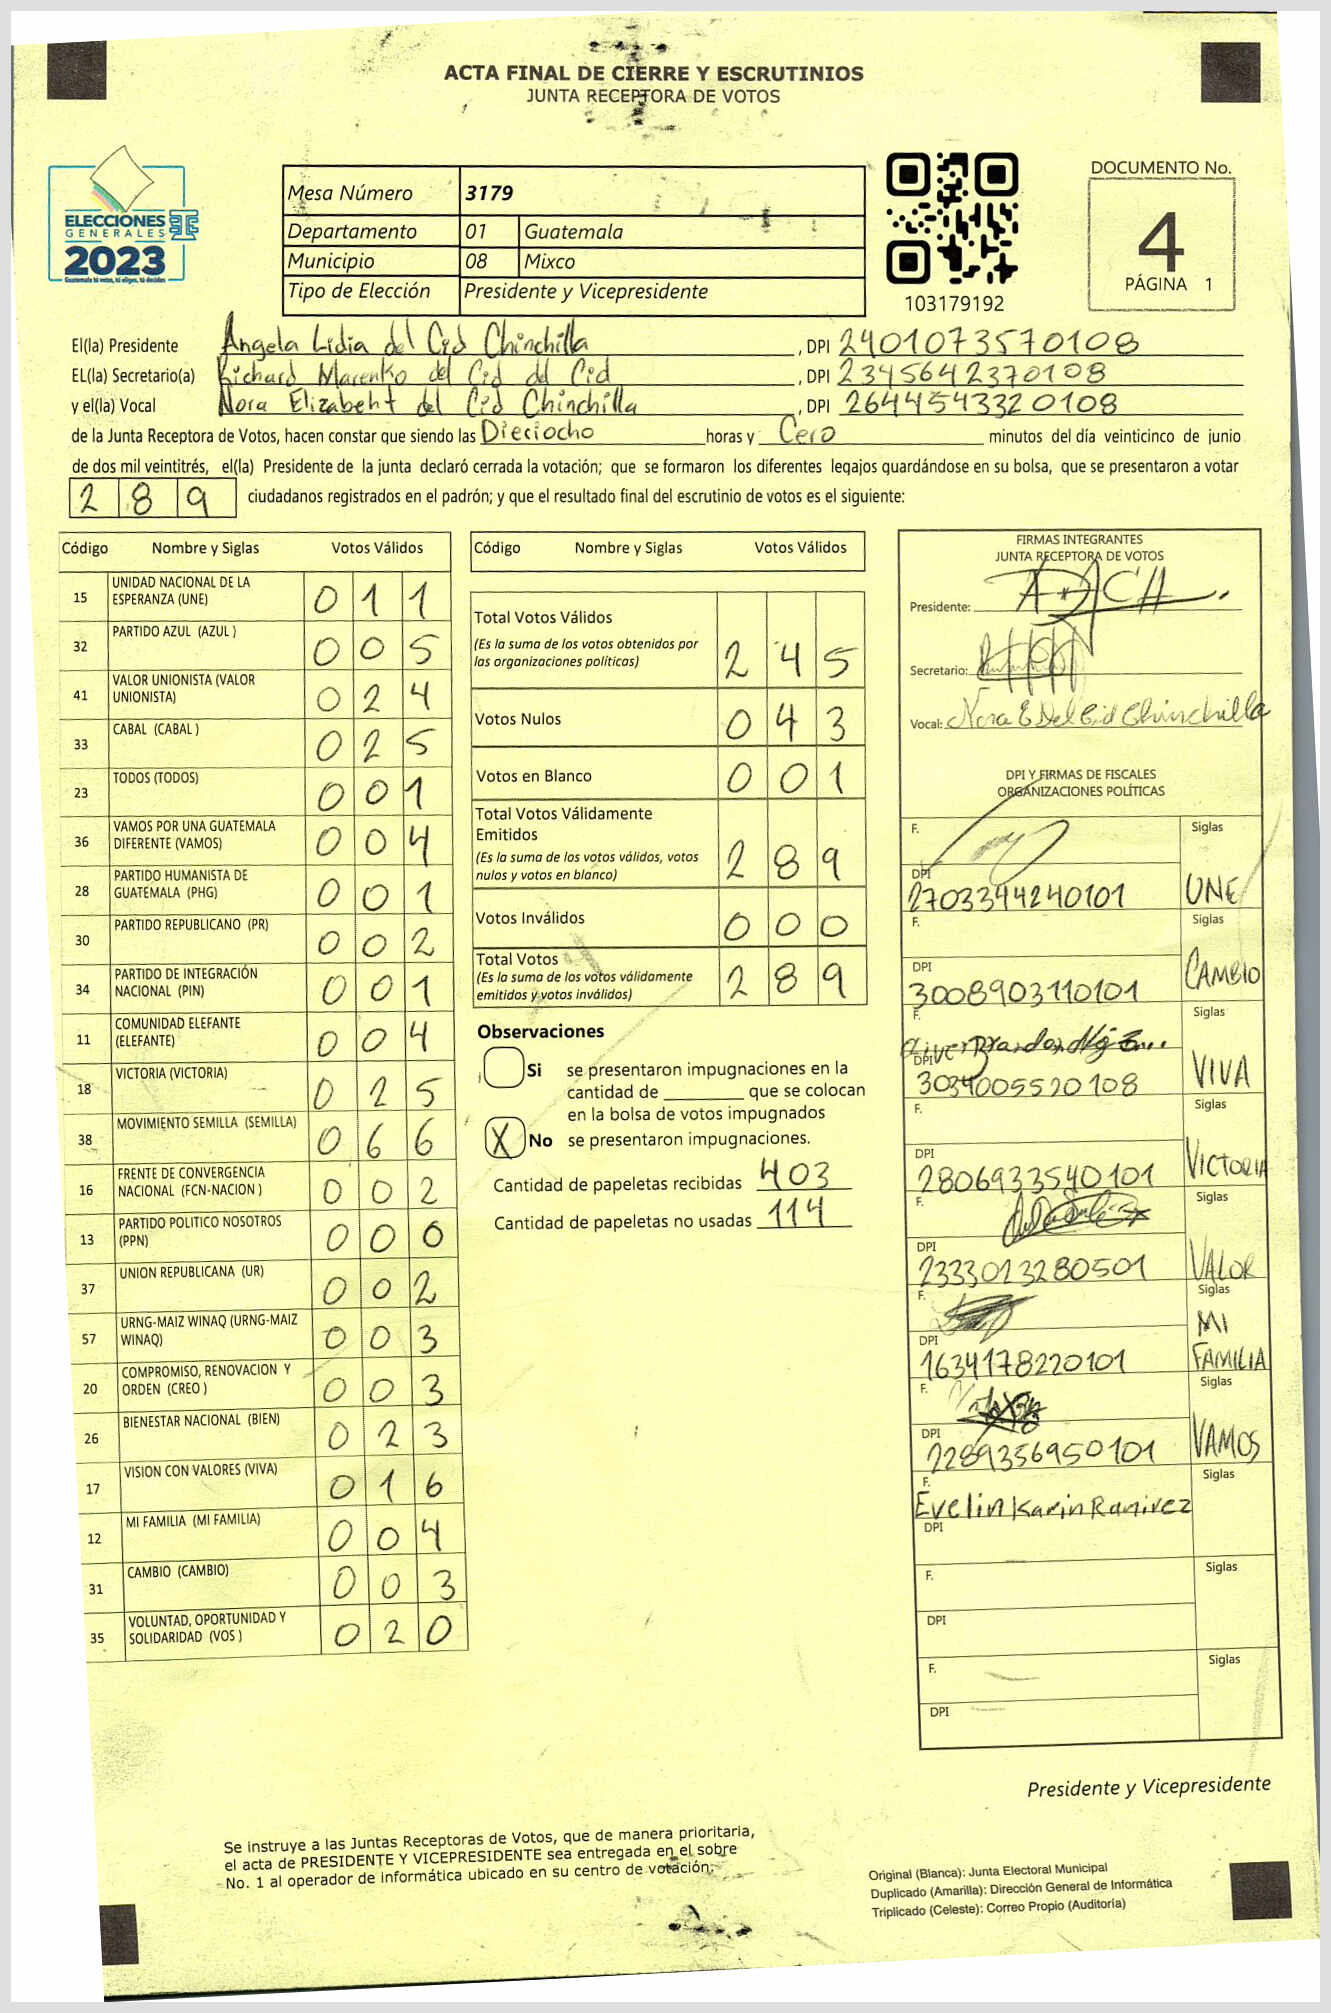 ACTA FINAL DE CIERRE Y ESCRUTINIOS
JUNTA RECEPTORA DE VOTOS
ELECCIONES
GENERALES
2023
Guatemala tú votas, tú eliges, tú decides
Mesa Número 3179
Departamento 01 Guatemala
Municipio 08 Mixco
Tipo de Elección Presidente y Vicepresidente
103179192
DOCUMENTO No.
4
PÁGINA 1
El(la) Presidente Angela Lidia del Cid Chinchilla, DPI 2401073570108
EL(la) Secretario(a) Richard Marenko del Cid del Cid, DPI 2345642370108
y el(la) Vocal Nora Elizabeht del Cid Chinchilla, DPI 2644543320108
de la Junta Receptora de Votos, hacen constar que siendo las Dieciocho horas y Cero minutos del día veinticinco de junio
de dos mil veintitrés, el(la) Presidente de la junta declaró cerrada la votación; que se formaron los diferentes legajos guardándose en su bolsa, que se presentaron a votar
289 ciudadanos registrados en el padrón; y que el resultado final del escrutinio de votos es el siguiente:
Código Nombre y Siglas Votos Válidos
15 UNIDAD NACIONAL DE LA ESPERANZA (UNE) 011
32 PARTIDO AZUL (AZUL ) 005
41 VALOR UNIONISTA (VALOR UNIONISTA) 024
33 CABAL (CABAL ) 025
23 TODOS (TODOS) 001
36 VAMOS POR UNA GUATEMALA DIFERENTE (VAMOS) 004
28 PARTIDO HUMANISTA DE GUATEMALA (PHG) 001
30 PARTIDO REPUBLICANO (PR) 002
34 PARTIDO DE INTEGRACIÓN NACIONAL (PIN) 001
11 COMUNIDAD ELEFANTE (ELEFANTE) 004
18 VICTORIA (VICTORIA) 025
38 MOVIMIENTO SEMILLA (SEMILLA) 066
16 FRENTE DE CONVERGENCIA NACIONAL (FCN-NACION ) 002
13 PARTIDO POLITICO NOSOTROS (PPN) 000
37 UNION REPUBLICANA (UR) 002
57 URNG-MAIZ WINAQ (URNG-MAIZ WINAQ) 003
20 COMPROMISO, RENOVACION Y ORDEN (CREO ) 003
26 BIENESTAR NACIONAL (BIEN) 023
17 VISION CON VALORES (VIVA) 016
12 MI FAMILIA (MI FAMILIA) 004
31 CAMBIO (CAMBIO) 003
35 VOLUNTAD, OPORTUNIDAD Y SOLIDARIDAD (VOS ) 020
Código Nombre y Siglas Votos Válidos
Total Votos Válidos
(Es la suma de los votos obtenidos por
las organizaciones políticas) 245
Votos Nulos 043
Votos en Blanco 001
Total Votos Válidamente
Emitidos
(Es la suma de los votos válidos, votos
nulos y votos en blanco) 289
Votos Inválidos 000
Total Votos
(Es la suma de los votos válidamente
emitidos y votos inválidos) 289
Observaciones
Si se presentaron impugnaciones en la
cantidad de ________ que se colocan
en la bolsa de votos impugnados
X No se presentaron impugnaciones.
Cantidad de papeletas recibidas 403
Cantidad de papeletas no usadas 114
FIRMAS INTEGRANTES
JUNTA RECEPTORA DE VOTOS
Presidente:
Secretario:
Vocal: Nora E Del Cid Chinchilla
DPI Y FIRMAS DE FISCALES
ORGANIZACIONES POLÍTICAS
F. Siglas
DPI 2703344240101 UNE
F. Siglas
DPI 3008903110101 CAMBIO
F. Siglas
DPI 3034005520108 VIVA
F. Siglas
DPI 2806933540101 VICTORIA
F. Siglas
DPI 2333013280501 VALOR
F. Siglas
DPI 1634178220101 MI FAMILIA
F. Siglas
DPI 2289356950101 VAMOS
F. Evelin Karin Ramirez Siglas
DPI
F. Siglas
DPI
F. Siglas
DPI
Presidente y Vicepresidente
Se instruye a las Juntas Receptoras de Votos, que de manera prioritaria,
el acta de PRESIDENTE Y VICEPRESIDENTE sea entregada en el sobre
No. 1 al operador de informática ubicado en su centro de votación.
Original (Blanca): Junta Electoral Municipal
Duplicado (Amarilla): Dirección General de Informática
Triplicado (Celeste): Correo Propio (Auditoría)